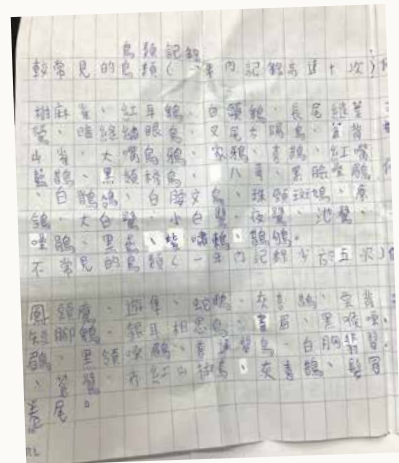 鳥類記錄
較常見的鳥類(一年內記錄高達十次)
樹麻雀、紅耳鵯、白頭鵯、長尾縫葉
鶯、暗綠繡眼鳥、叉尾太陽鳥、蒼背
山雀、大嘴烏鴉、家鴉、喜鵲、紅嘴
藍鵲、黑領椋鳥、八哥、黑臉噪鶥
、白鶺鴒、白腰文鳥、珠頸斑鳩、原
鴿、大白鷺、小白鷺、夜鷺、池鷺、
噪鵑、黑鳶、紫嘯鶇、鵲鴝。
不常見的鳥類(一年內記錄少於五次)
鳳頭鷹、遊隼、蛇鵰、灰喜鵲、栗背
短腳鵯、銀耳相思鳥、畫眉、黑喉噪
鶥、黑領噪鶥、黃眉鶯、白胸翡翠
、鷺、赤紅山椒鳥、灰喜鵲、髮冠
卷尾。